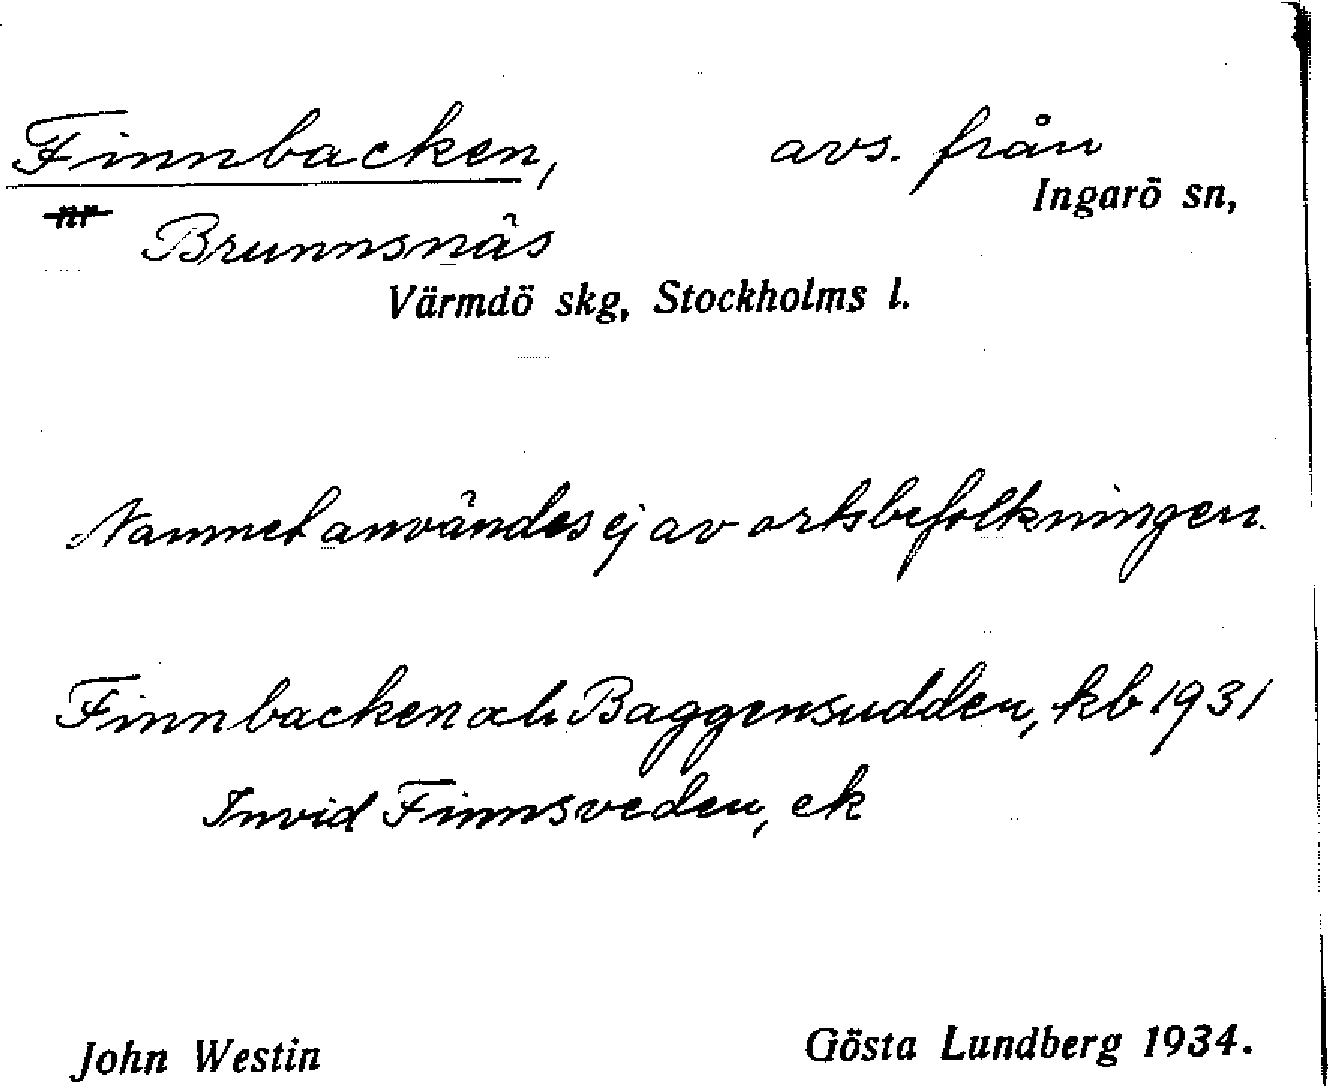 Finnbacken, avs. från
Ingarö sn,
nr Brunnsnäs
Värmdö skg, Stockholms l.
Namnet användes ej av ortsbefolkningen.
Finnbacken och Baggensudden, kb 1931
Invid Finnsveden, ek
John Westin Gösta Lundberg 1934.